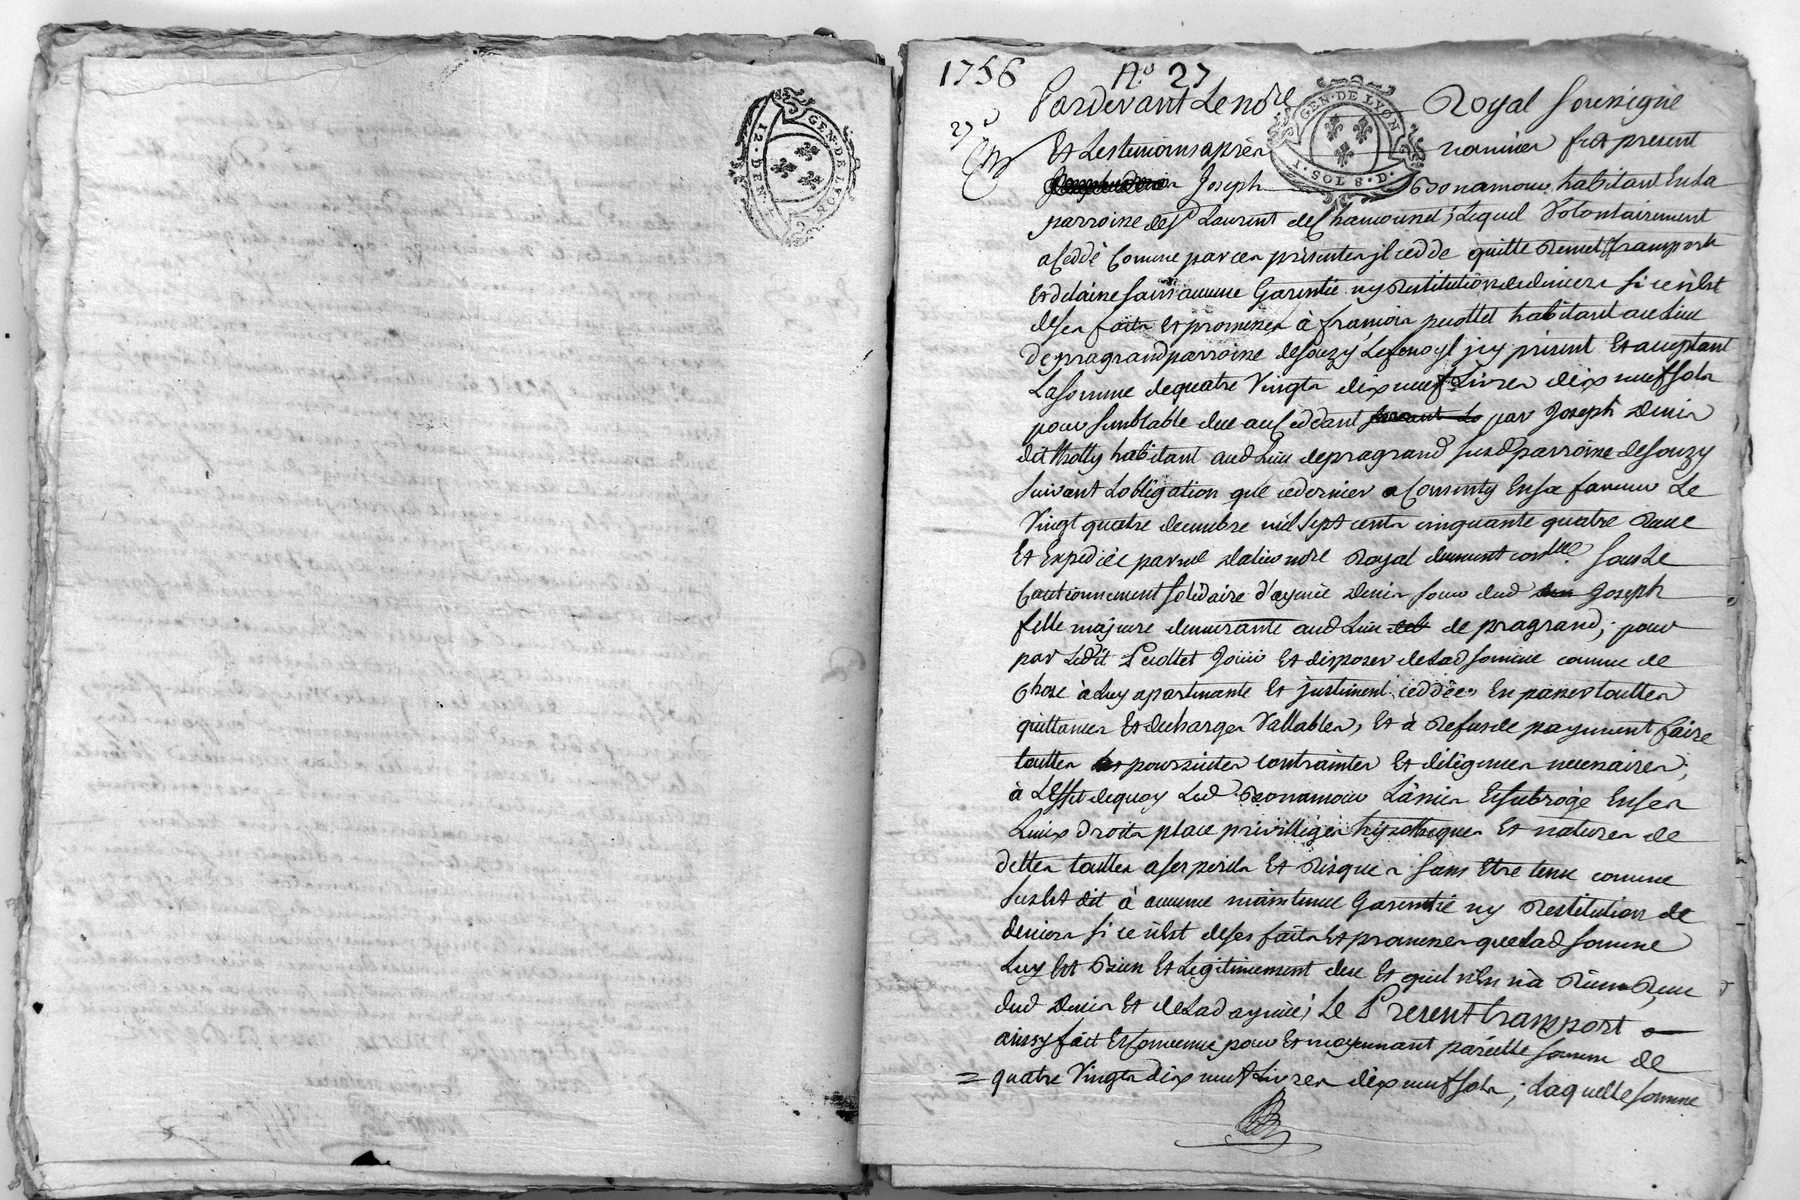 GEN·DE LYON
12·DEN
1756 N.° 27
Pardevant Le no.re GEN·DE LYON Royal Soussigné
1·SOL 8·D·
27
Et Les temoins après nommés fut present
Joseph Bonamour habitant En La
parroisse de S.t Laurent de Chamousset; Lequel Volontairement
a Ceddé Comme par ces présentes jl cedde quitte Remet transporte
Et delaisse sans aucune Garentie ny Restitution de deniers si ce n'Est
de ses faits et promesses à francois puottet habitant au Lieu
de pragrand parroisse de Souzy Lesenoyl jcy present Et aceptant
La Somme de quatre Vingts dix neuf Livres dix neuf sols
pour semblable due au Ceddant par Joseph Denis
dit Molly habitant aud Lieu de pragrand susd parroisse de Souzy
suivant Lobligation que ce dernier a Consenty En sa faveur Le
Vingt quatre decembre mil sept cents cinquante quatre Reçue
Et Expediée par ledit no.re Royal duement con.llée sous Le
Cautionnement solidaire d'aymée Denis soeur dud Joseph
fille majeure demeurante aud Lieu de pragrand; pour
par Ledit Puottet Jouir Et disposer de Lad somme comme de
Chose à Luy apartenante Et justement ceddée, En passer touttes
quittances Et decharges Vallables, Et à Refus de payement faire
touttes poursuites contraintes Et diligences necessaires;
à L'Effet de quoy Led Bonamour L'a mis Et subrogé En ses
Lieux droits place privilliges hypotheques Et natures de
dettes touttes a ses perils Et Risques sans Etre tenu comme
sus Est dit à aucune maintenue Garentie ny Restitution de
deniers si ce n'Est de ses faits Et promesses que Lad somme
Luy Est Bien Et Legitimement due Et quil n'En n'a Rien Reçu
dud Denis Et de Lad aymée; Le Present transport
ainsy fait Et Convenu pour Et moyennant pareille somme de
= quatre Vingts dix neuf Livres dix neuf sols; Laquelle somme